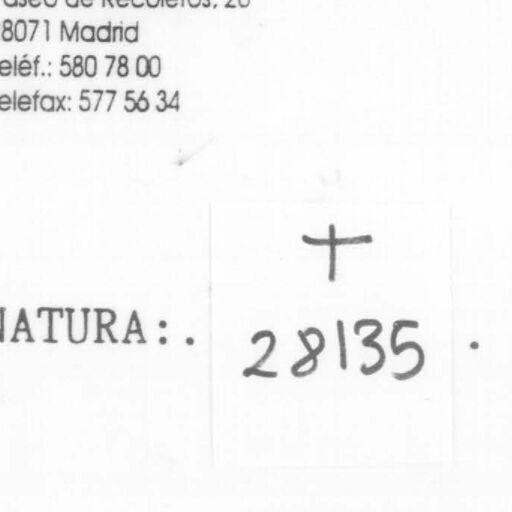 aseo de Recoletos, 20
8071 Madrid
eléf.: 580 78 00
elefax: 577 56 34
+
NATURA:. 28135 .